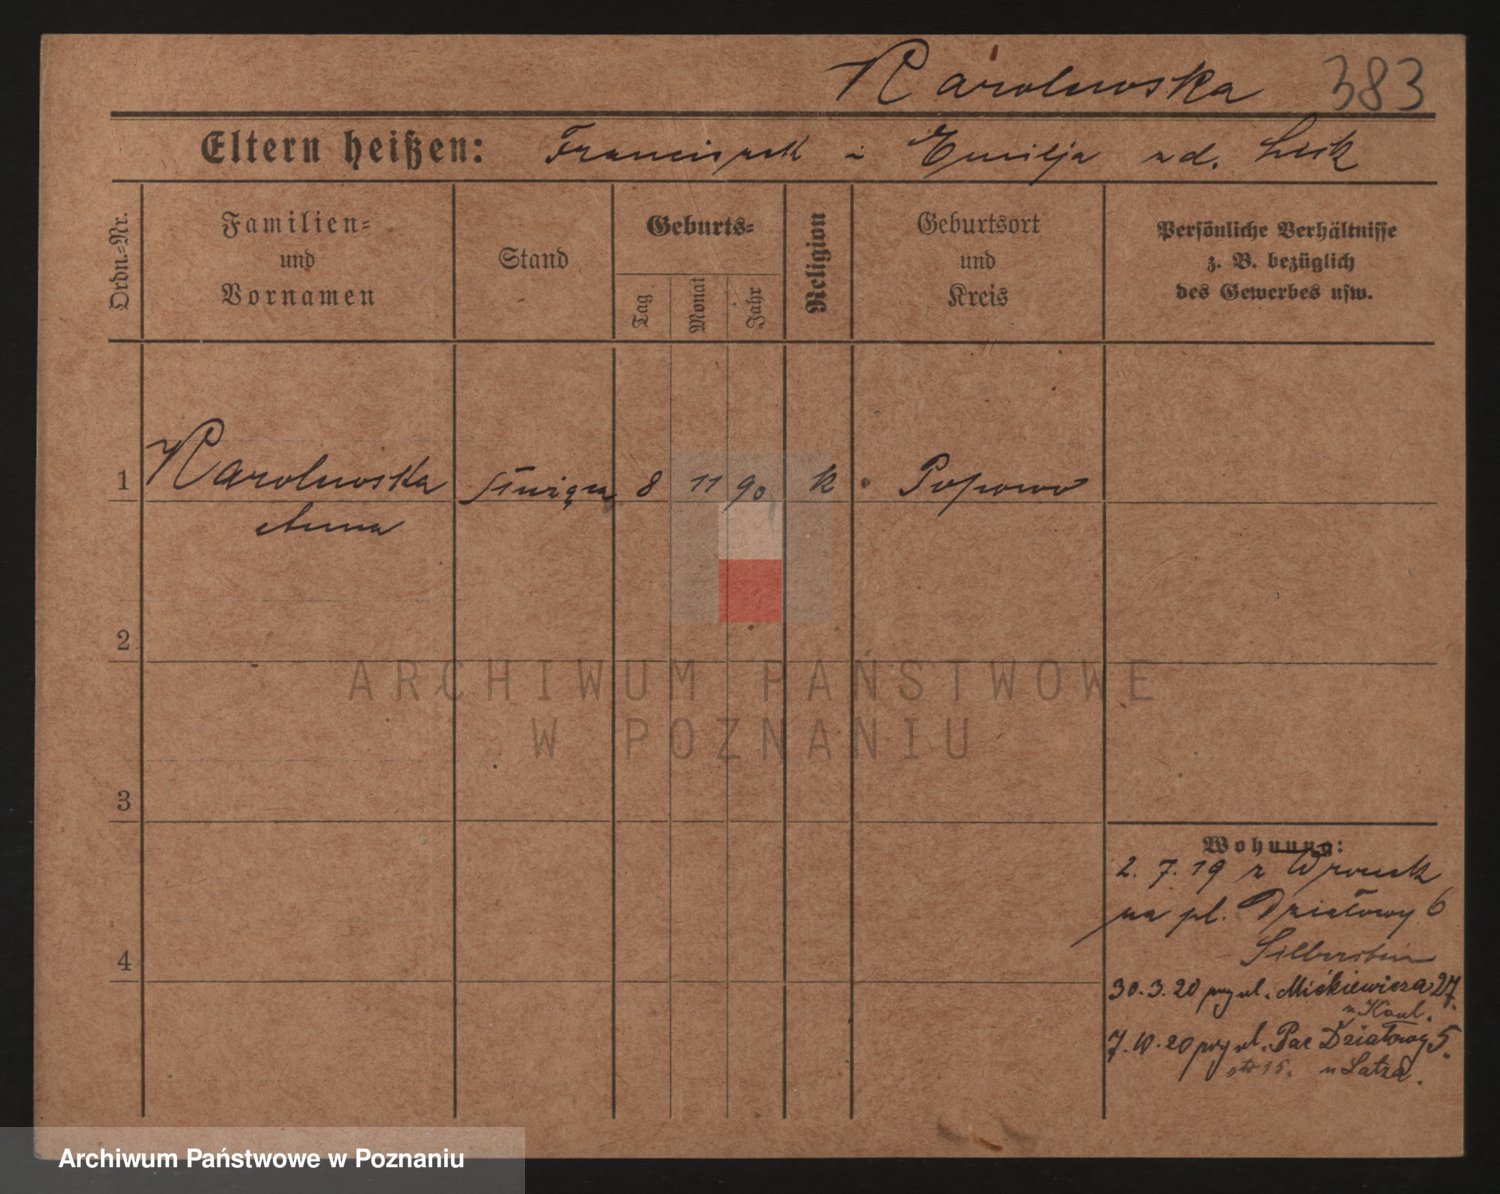 Karolewska 383
Eltern heißen: Franciszek i Emilja zd. Lisk
Ordn.-Nr.
Familien-
und
Vornamen
Stand
Geburts-
Tag
Monat
Jahr
Religion
Geburtsort
und
Kreis
Persönliche Verhältnisse
z. B. bezüglich
des Gewerbes usw.
1 Karolewska 8 11 90 k Popowo
Anna
2
ARCHIWUM PAŃSTWOWE
W POZNANIU
3
4
Wohnung:
2. 7. 19 z Wronek
na pl. Działowy 6
Silberstein
30. 3. 20 przy ul. Mickiewicza 27.
u Kaul.
7. 10. 20 przy ul. Plac Działowy 5.
u Latza.
Archiwum Państwowe w Poznaniu